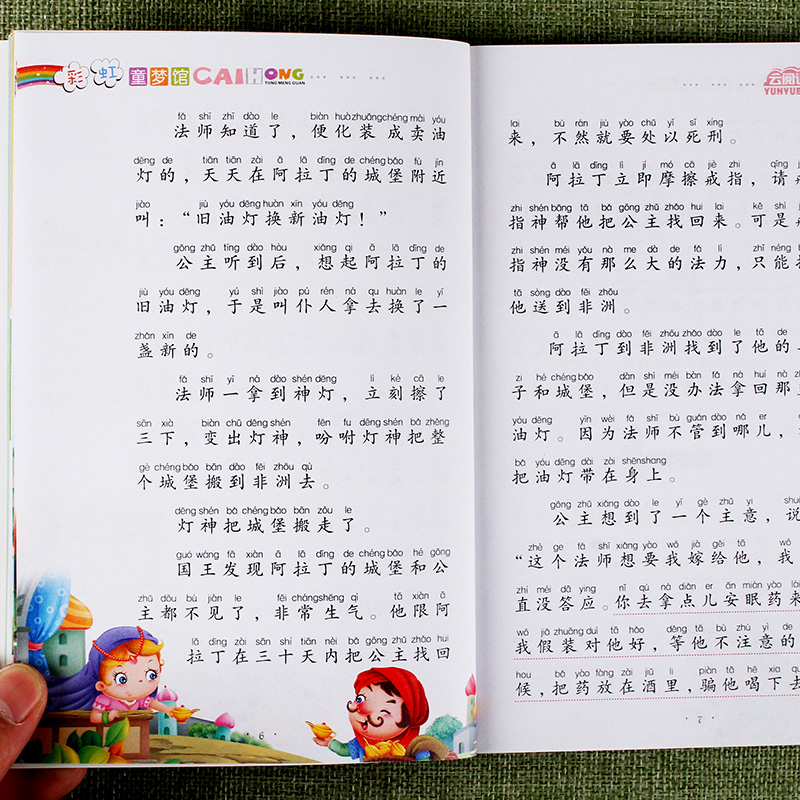 彩虹童梦馆 CAIHONG
TONG MENG GUAN
fǎ shī zhī dào le biàn huà zhuāng chéng mài yóu
法师知道了，便化装成卖油
dēng de tiān tiān zài ā lā dīng de chéng bǎo fù jìn
灯的，天天在阿拉丁的城堡附近
jiào jiù yóu dēng huàn xīn yóu dēng
叫：“旧油灯换新油灯！”
gōng zhǔ tīng dào hòu xiǎng qǐ ā lā dīng de
公主听到后，想起阿拉丁的
jiù yóu dēng yú shì jiào pú rén ná qu huàn le yī
旧油灯，于是叫仆人拿去换了一
zhǎn xīn de
盏新的。
fǎ shī yī ná dào shén dēng lì kè cā le
法师一拿到神灯，立刻擦了
sān xià biàn chū dēng shén fēn fu dēng shén bǎ zhěng
三下，变出灯神，吩咐灯神把整
gè chéng bǎo bān dào fēi zhōu qù
个城堡搬到非洲去。
dēng shén bǎ chéng bǎo bān zǒu le
灯神把城堡搬走了。
guó wáng fā xiàn ā lā dīng de chéng bǎo hé gōng
国王发现阿拉丁的城堡和公
zhǔ dōu bù jiàn le fēi cháng shēng qì tā xiàn ā
主都不见了，非常生气。他限阿
lā dīng zài sān shí tiān nèi bǎ gōng zhǔ zhǎo huí
拉丁在三十天内把公主找回
6
云阅读
YUNYUE
lai bù rán jiù yào chǔ yǐ sǐ xíng
来，不然就要处以死刑。
ā lā dīng lì jí mó cā jiè zhi qǐng
阿拉丁立即摩擦戒指，请
zhi shén bāng tā bǎ gōng zhǔ zhǎo huí lái kě shì
指神帮他把公主找回来。可是
zhi shén méi yǒu nà me dà de fǎ lì zhǐ néng
指神没有那么大的法力，只能
tā sòng dào fēi zhōu
他送到非洲。
ā lā dīng dào fēi zhōu zhǎo dào le tā de
阿拉丁到非洲找到了他的
zi hé chéng bǎo dàn shì méi bàn fǎ ná huí nà
子和城堡，但是没办法拿回那
yóu dēng yīn wèi fǎ shī bù guǎn dào nǎ er
油灯。因为法师不管到哪儿，
bǎ yóu dēng dài zài shēn shang
把油灯带在身上。
gōng zhǔ xiǎng dào le yī gè zhǔ yi shuō
公主想到了一个主意，说
zhè ge fǎ shī xiǎng yào wǒ jià gěi tā wǒ
“这个法师想要我嫁给他，我
zhí méi dā yìng nǐ qù ná diǎn er ān mián yào lái
直没答应。你去拿点儿安眠药来
wǒ jiǎ zhuāng duì tā hǎo děng tā bù zhù yì de
我假装对他好，等他不注意的
hou bǎ yào fàng zài jiǔ li piàn tā hē xia qu
候，把药放在酒里，骗他喝下去
7